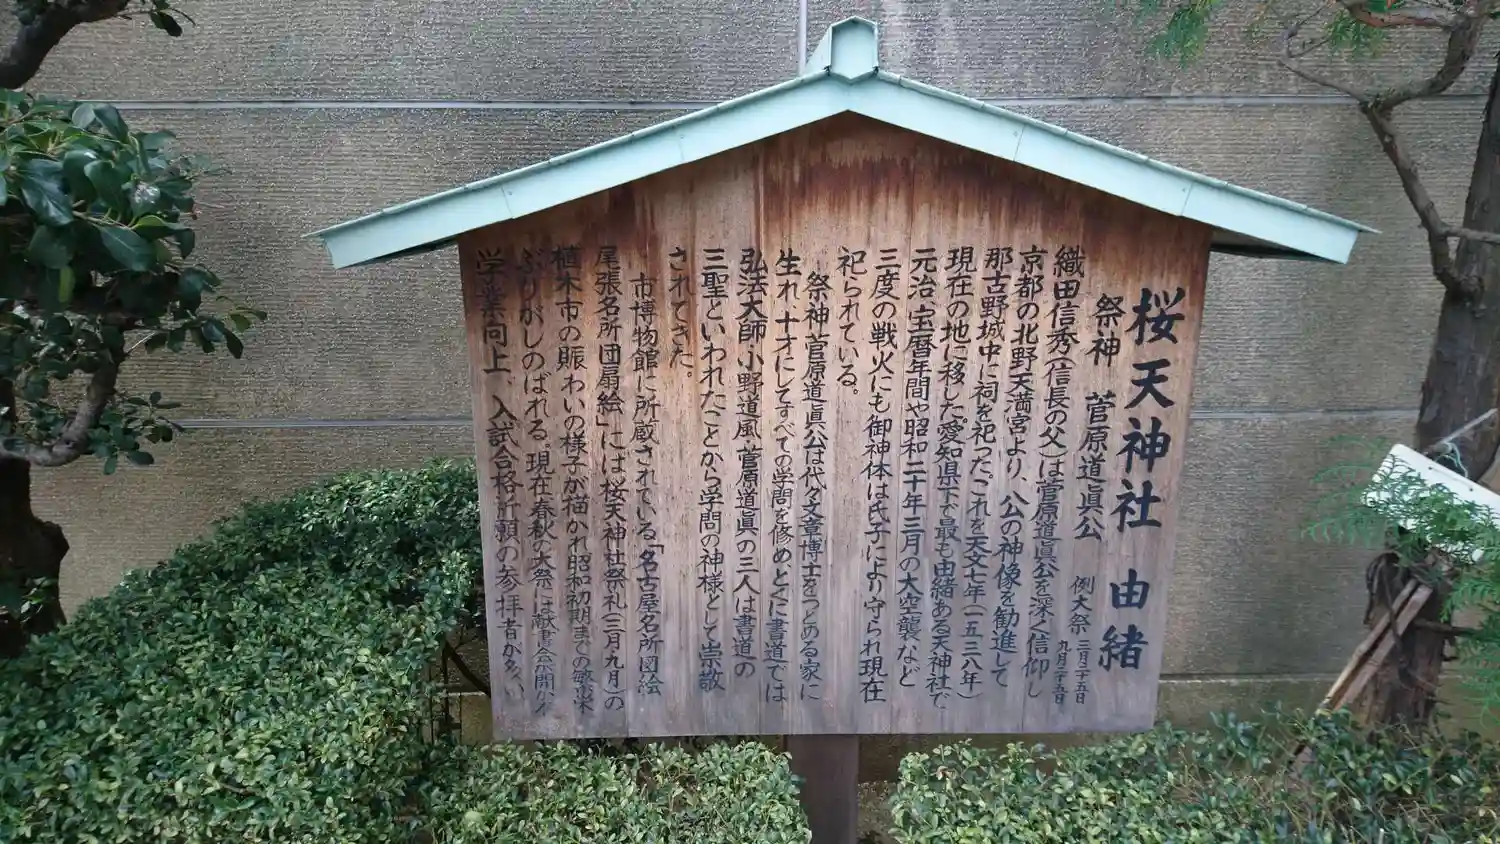 桜天神社 由緒
祭神 菅原道眞公 例大祭 三月二十五日 九月二十五日
織田信秀(信長の父)は菅原道眞公を深く信仰し
京都の北野天満宮より、公の神像を勧進して
那古野城中に祠を祀った。これを天文七年(一五三八年)
現在の地に移した。愛知県下で最も由緒ある天神社で
元治、宝暦年間や昭和二十年三月の大空襲など
三度の戦火にも御神体は氏子により守られ現在
祀られている。
祭神菅原道眞公は代々文章博士をつとめる家に
生れ、十才にしてすべての学問を修め、とくに書道では
弘法大師・小野道風・菅原道眞の三人は書道の
三聖といわれたことから学問の神様として崇敬
されてきた。
市博物館に所蔵されている「名古屋名所図絵
尾張名所団扇絵」には桜天神社祭礼(三月九月)の
植木市の賑わいの様子が描かれ昭和初期までの繁栄
ぶりがしのばれる。現在春秋の大祭には献書会が開かれ
学業向上、入試合格祈願の参拝者が多い